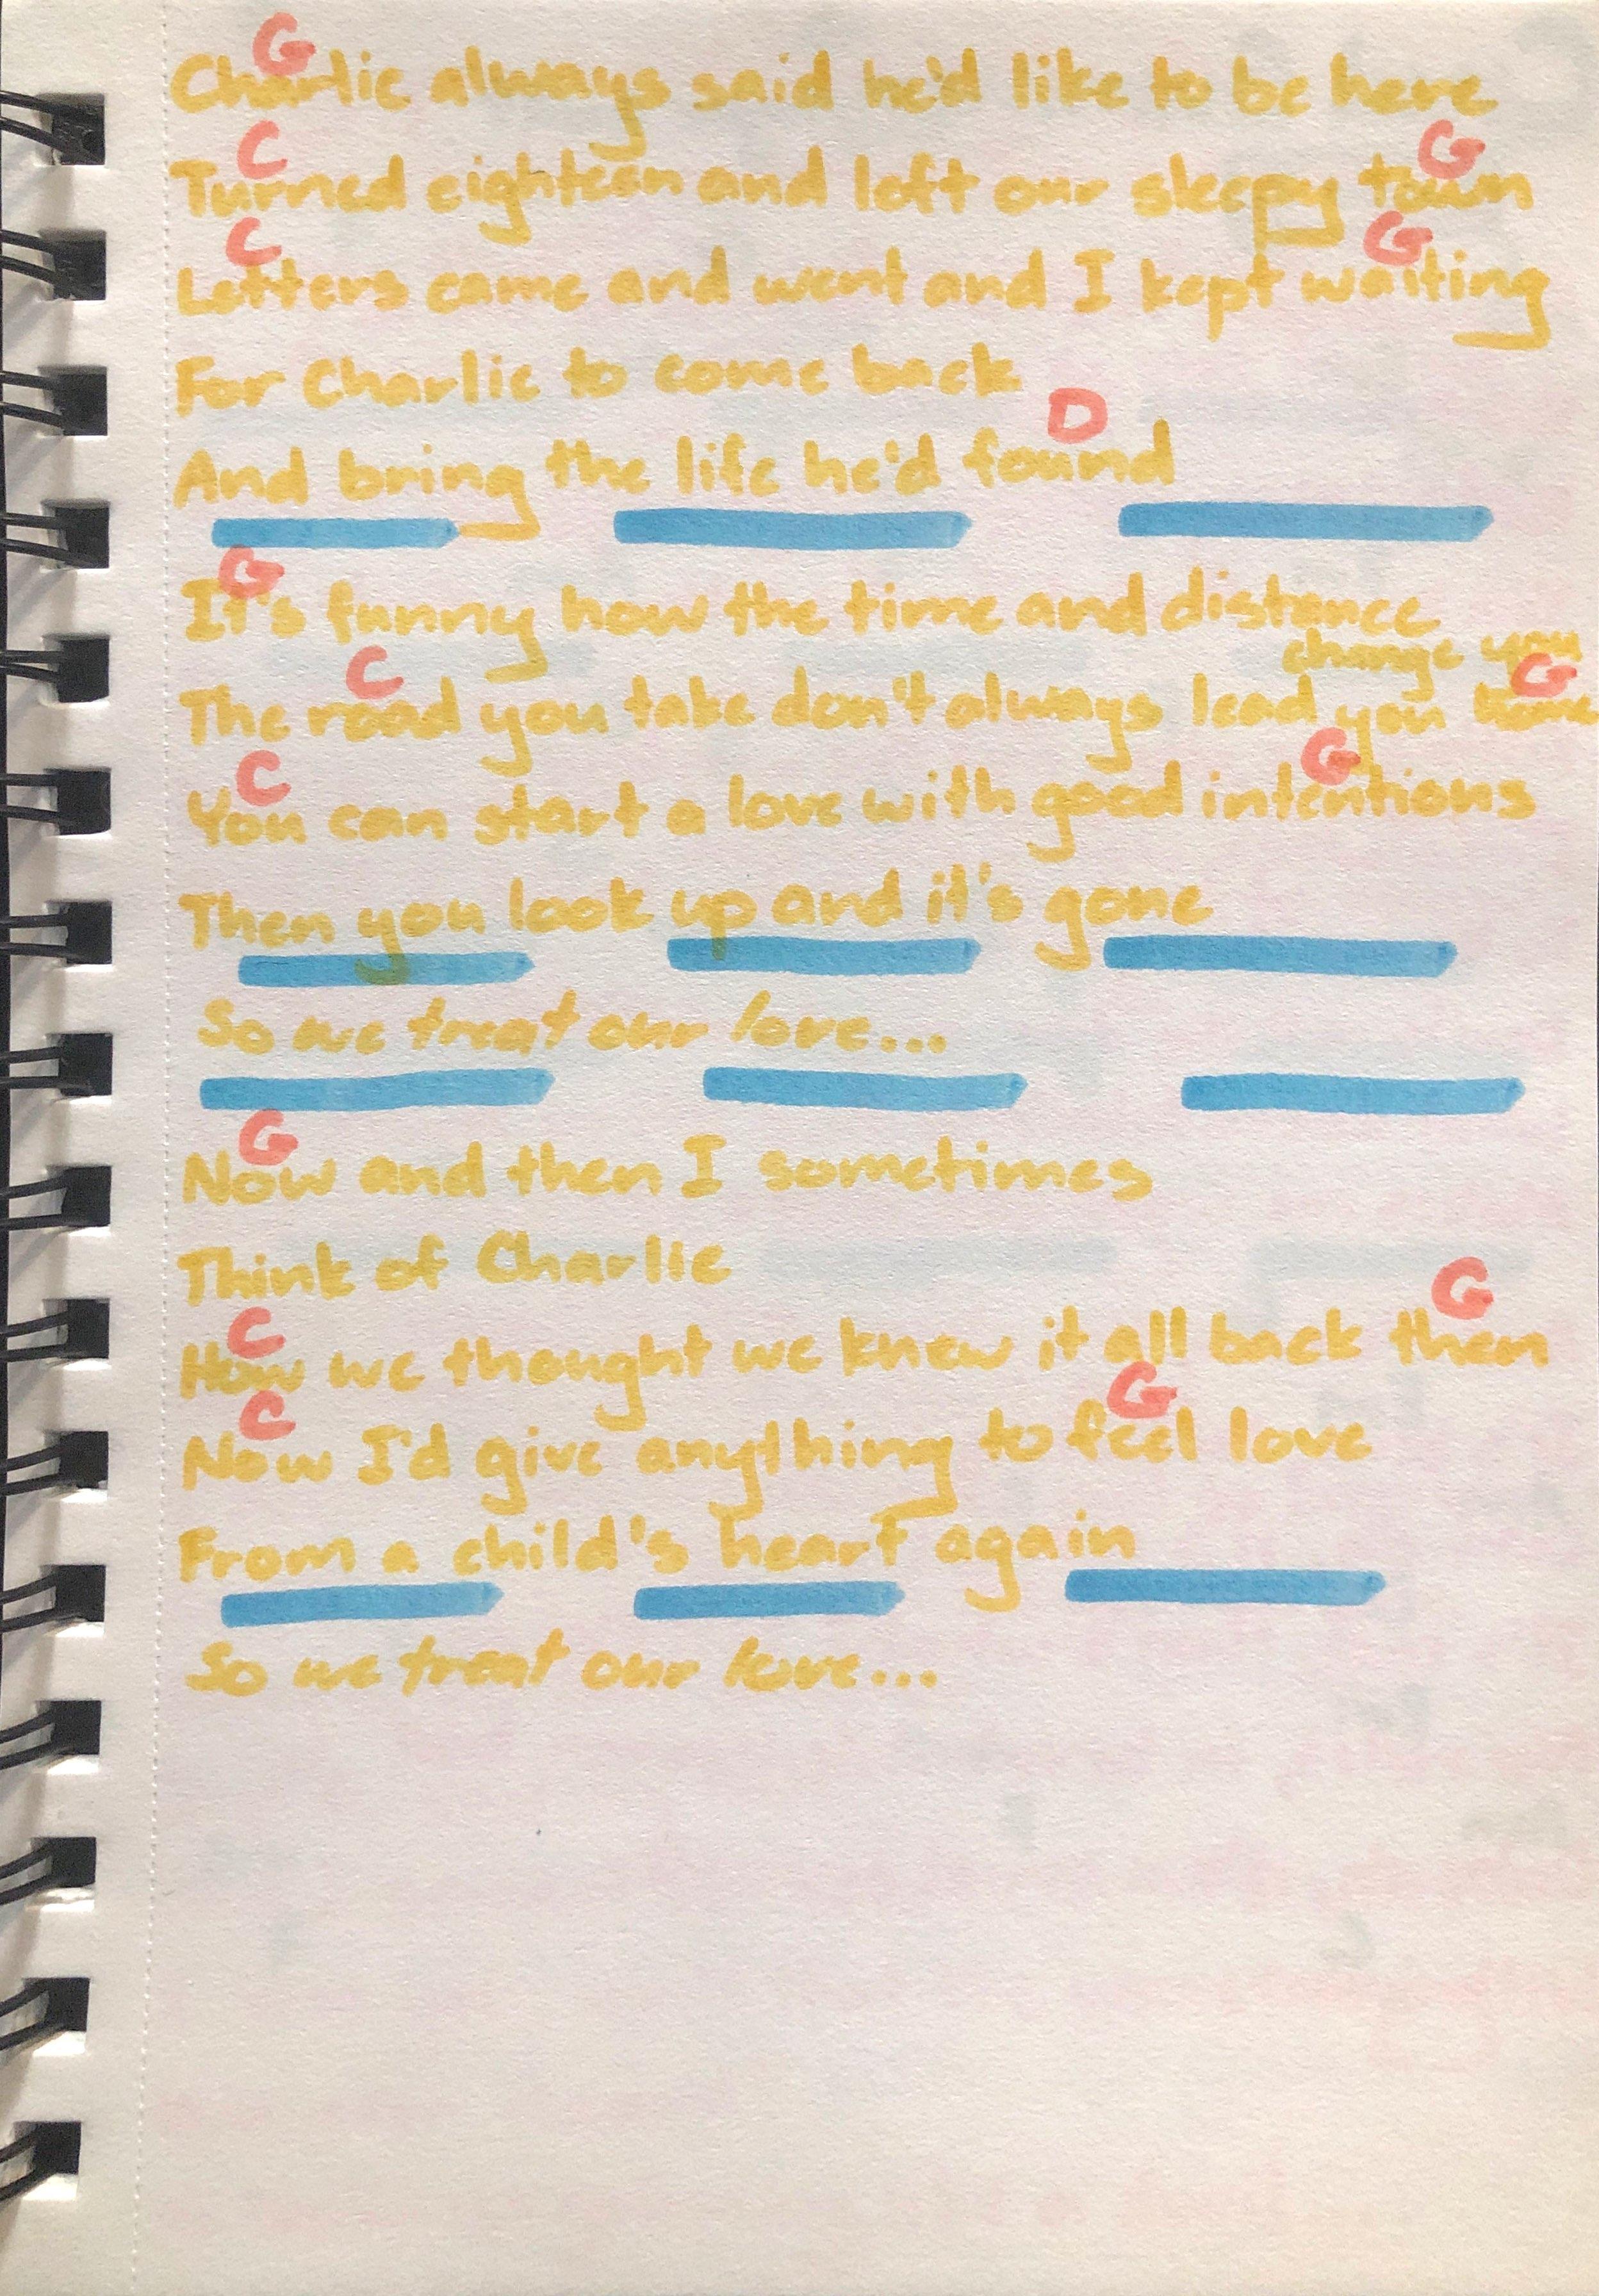 G
Charlie always said he'd like to be here
C G
Turned eighteen and left our sleepy town
C G
Letters came and went and I kept waiting
For Charlie to come back
D
And bring the life he'd found
G
It's funny how the time and distance
change you
C G
The road you take don't always lead you home
C G
You can start a love with good intentions
Then you look up and it's gone
So we treat our love...
G
Now and then I sometimes
Think of Charlie
C G
How we thought we knew it all back then
C G
Now I'd give anything to feel love
From a child's heart again
So we treat our love...